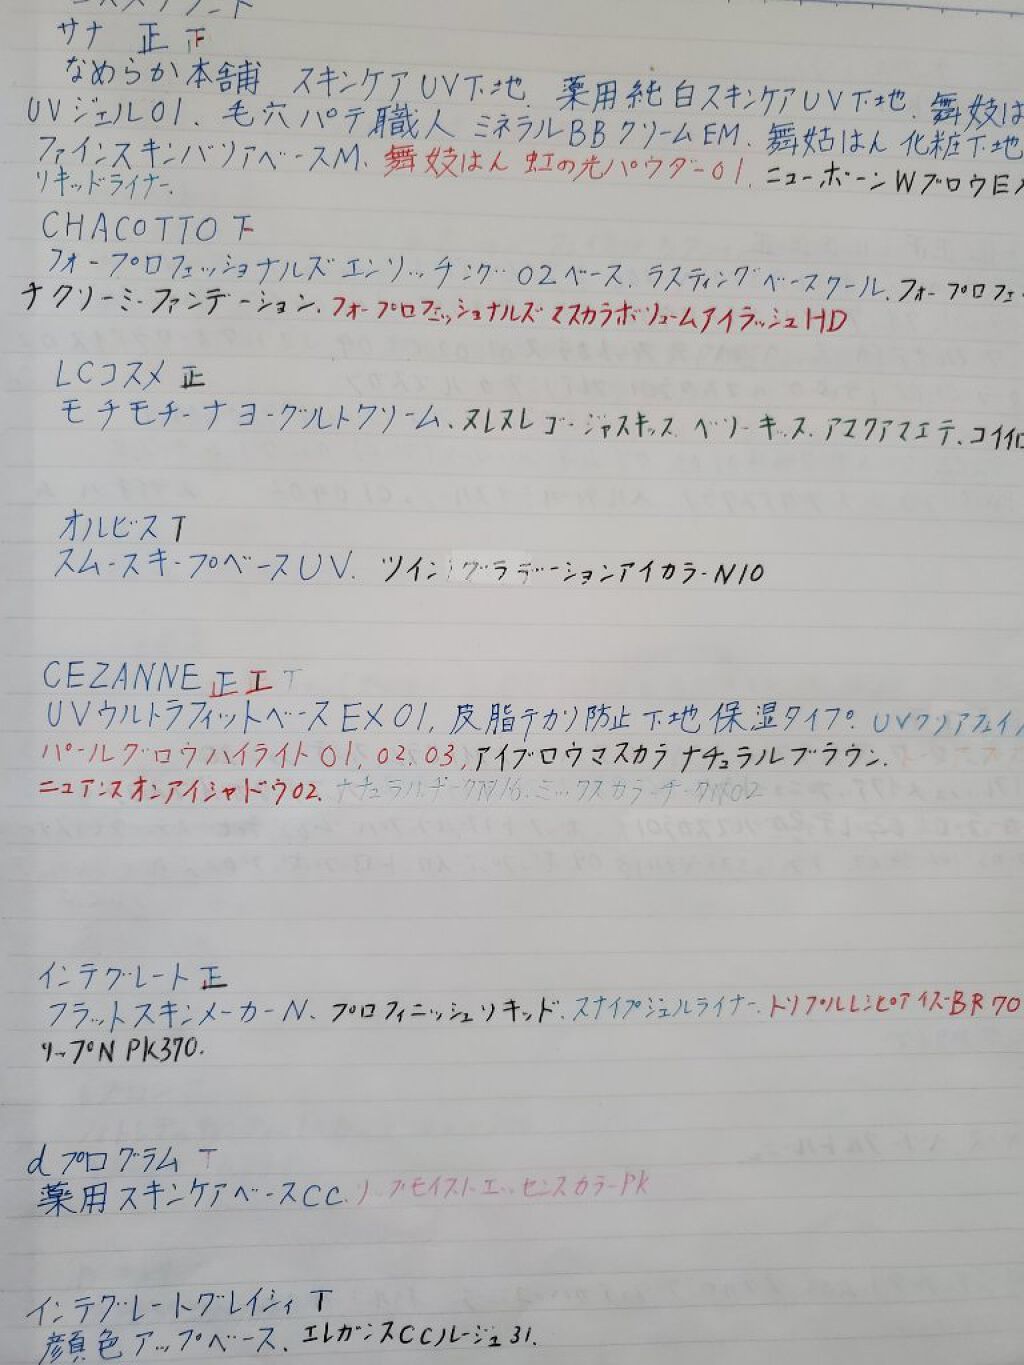 サナ 正 下
なめらか本舗 スキンケアUV下地、薬用純白スキンケアUV下地、舞妓は
UVジェル01、毛穴パテ職人 ミネラルBBクリームEM、舞姑はん 化粧下地
ファインスキンバリアベースM、舞妓はん 虹の光パウダー01、ニューボーンWブロウEX
リキッドライナー、
CHACOTTO 下
フォープロフェッショナルズエンリッチング02ベース、ラスティングベースクール、フォープロフェ
ナクリーミーファンデーション、フォープロフェッショナルズマスカラボリュームアイラッシュHD
LCコスメ 正
モチモチーナヨーグルトクリーム、ヌレヌレゴージャスキッス ベリーキッス、アマクアマエテ、コイイロ
オルビス T
スムースキープベースUV、ツイングラデーションアイカラーN10
CEZANNE 正 工 T
UVウルトラフィットベースEX01、皮脂テカリ防止下地 保湿タイプ、UVクリアフェイ
パールグロウハイライト01, 02, 03, アイブロウマスカラ ナチュラルブラウン、
ニュアンスオンアイシャドウ02、ナチュラルチークN16、ミックスカラーチーク02
インテグレート 正
フラットスキンメーカーN、プロフィニッシュリキッド、スナイプジェルライナー、トリプルレシピアイズBR70
リップN PK370、
dプログラム T
薬用スキンケアベースCC、リップモイストエッセンスカラーPK
インテグレートグレイシィ T
顔色アップベース、エレガンスCCルージュ31、